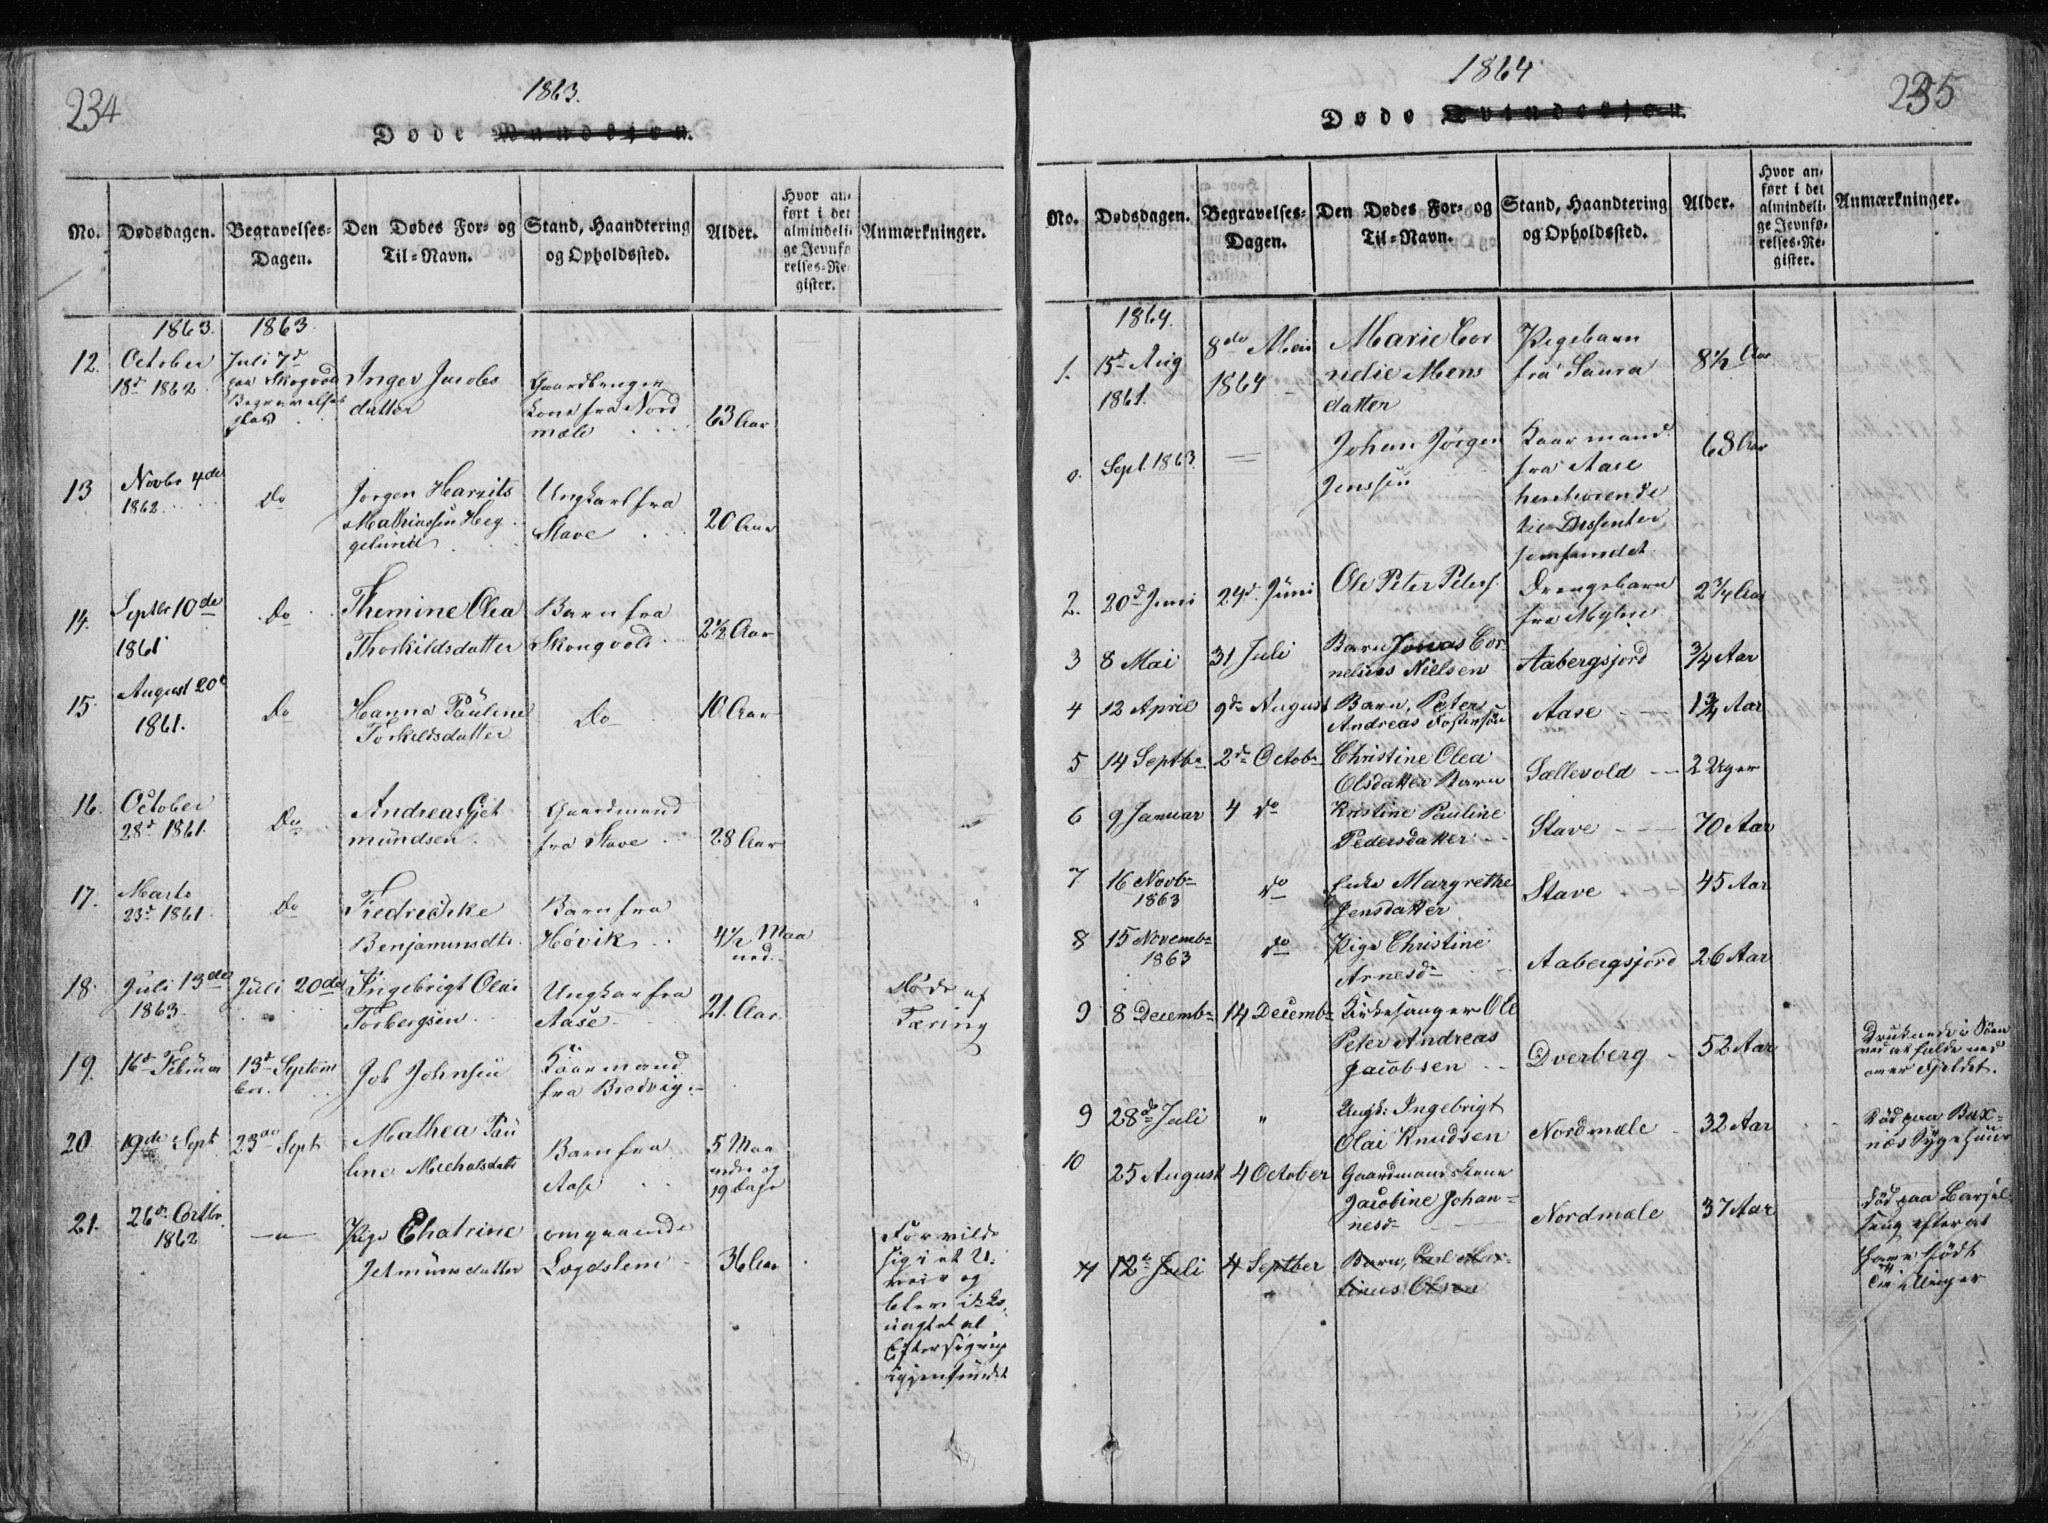 234
1863.
Døde Mandkjøn.
No.
Dødsdagen.
Begravelses-
Dagen.
Den Dødes For- og
Til-Navn.
Stand, Haandtering
og Opholdssted.
Alder.
Hvor an-
ført i det
almindeli-
ge Jevnfø-
relses-Re-
gister.
Anmærkninger.
1863. 1863.
12. October
18d 1862
Juli 7d
paa Skogvold
Begravelses
plads
Inger Jacobs
datter
Gaardbruger
kone fra Nord
mæle
63 Aar
13 Novbr 4de
1862
Do
Jørgen Hartvits
Mathiassen Heg
gelund
Ungkarl fra
Stave
20 Aar
14. Septbr 10de
1861
Do
Themine Olea
Thorkildsdatter
Barn fra
Skongvold
2½ Aar
15. August 20d
1861.
Do
Hanna Pauline
Torkildsdatter
Do
10 Aar
16. October
28d 1861.
Do
Andreas Gjet
mundsen
Gaardmand
fra Stave
28 Aar
17. Marts
23d 1861.
Do
Fredrikke
Benjaminsdtr.
Barn fra
Høvik
4½ Maa
ned
18. Juli 13de
1863.
Juli 20de
Ingebrigt Olai
Torbergsen
Ungkar fra
Aase
21. Aar.
Døde af
Tæring
19. 16d Februar
13d Septem
ber.
Job Johnsen
Kaarmand
fra Bredvig
20. 19de Sept
23de Sept
Mathea Pau
line Michalsdatter
Barn fra
Aase
5 Maa
neder og
19 Dage
21. 26de Octbr.
1862
— " —
Pige Chatrine
Jetmunsdatter
omgaaende
Lægdslem
36 Aar
Forvilde
sig i et U-
veir og
blev ikke
uagtet al
Eftersøgning
igjenfundet
1864
235
Døde Qvindekjøn.
No.
Dødsdagen.
Begravelses-
Dagen.
Den Dødes For- og
Til-Navn.
Stand, Haandtering
og Opholdssted.
Alder.
Hvor an-
ført i det
almindeli-
ge Jevnfø-
relses-Re-
gister.
Anmærkninger.
1864.
1. 15d Aug
1861.
8de Mai
1864
Marie Cor
nelie Mons
datter
Pigebarn
fra Saura
8½ Aar
0. Sept. 1863
Johan Jørgen
Jenssen
Kaarmand
fra Aase
henhørende
til Dissenter
samfundet
68 Aar
2. 20d Juni
24d. Juni
Ole Peter Peters.
Drengebarn
fra Myhre
2¾ Aar
3 8 Mai
31 Juli
Barn Jonas Cor
nelius Nielsen
Aabergsjord
¾ Aar
4 12 April
9de August
Barn, Peter
Andreas Tostensøn
Aase
1¾ Aar
5 14 Septbr
2d Octobr
Christine Olea
Olsdatter Barn
Sællevold
2 Uger
6 9 Januar
4 do
Kristine Pauline
Pedersdatter
Stave
70 Aar
7 16 Novbr
1863
do
Enke Margrethe
Jensdatter
Stave
45 Aar
8 15 Novembr
1863
do
Pige Christine
Arnesdr
Aabergsjord
26 Aar
9 8 Decembr
14 Decembr
Kirkesanger Ole
Peter Andreas
Jacobsen
Dverberg
52 Aar
Druknede i Søen
ved at falde ned
over Fjeldet.
9 28de Juli
"
Ungk: Ingebrigt
Olai Knudsen
Nordmæle
32 Aar
Død paa Bux-
næs Sygehuus
10
25 August
4 October
Gaardmandskone
Jacobine Johan-
nesdr
Nordmæle
37 Aar
Død paa Barsel
seng efter at
have født
Tvillinger
12te Juli
4 Septber
Barn, Carl Mar-
tinus Olsen